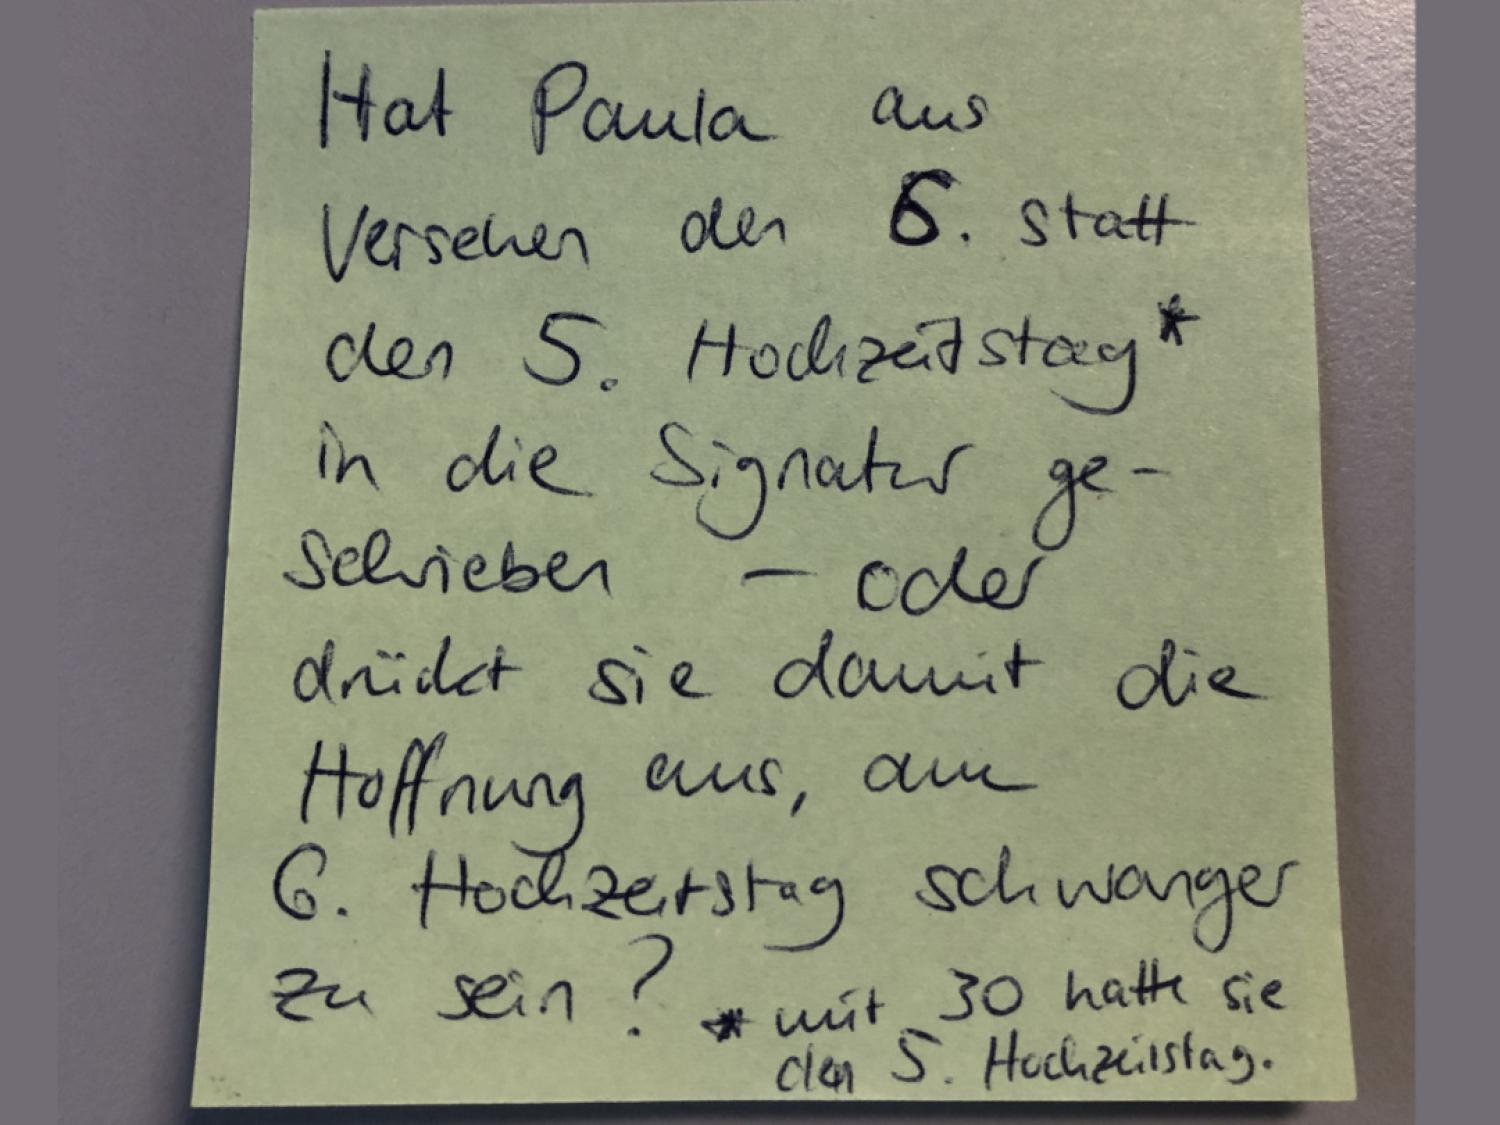 Hat Paula aus
Versehen den 6. statt
den 5. Hochzeitstag*
in die Signatur ge-
schrieben – oder
drückt sie damit die
Hoffnung aus, am
6. Hochzeitstag schwanger
zu sein?
* mit 30 hatte sie
den 5. Hochzeitstag.